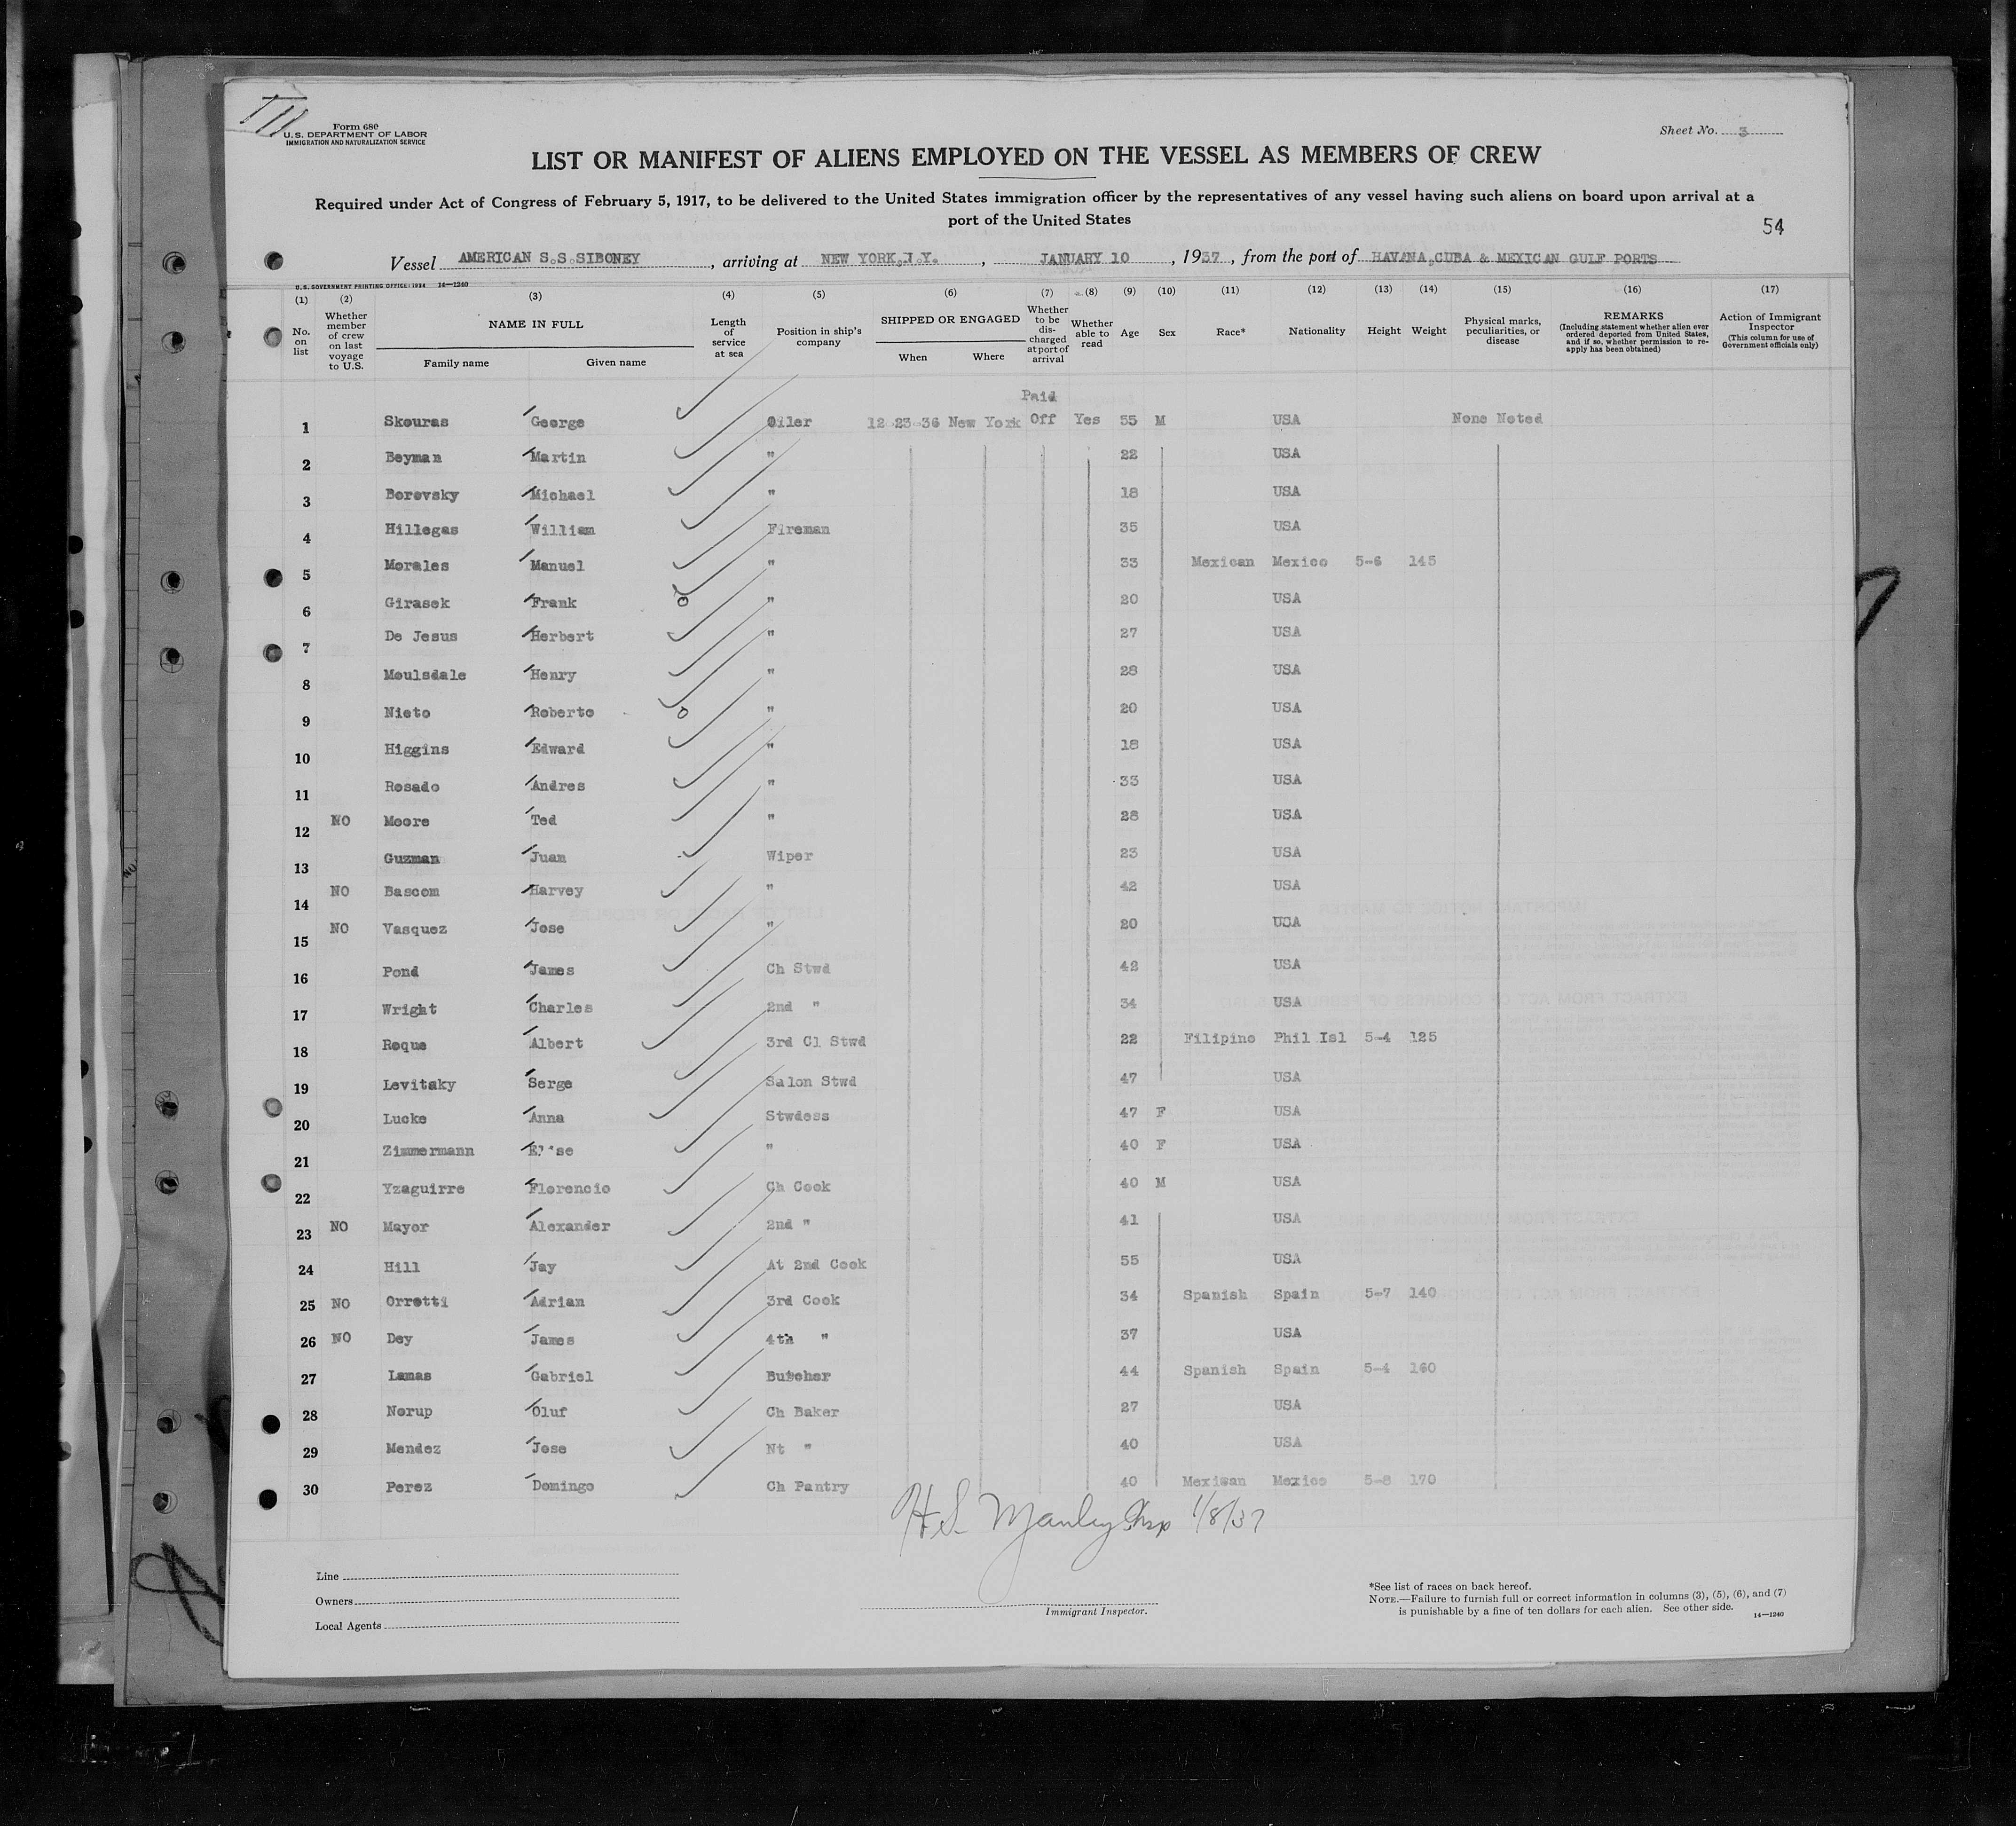 Form 680
U.S. DEPARTMENT OF LABOR
IMMIGRATION AND NATURALIZATION SERVICE
Sheet No. 3
LIST OR MANIFEST OF ALIENS EMPLOYED ON THE VESSEL AS MEMBERS OF CREW
Required under Act of Congress of February 5, 1917, to be delivered to the United States immigration officer by the representatives of any vessel having such aliens on board upon arrival at a
port of the United States
54
Vessel AMERICAN S.S.SIBONEY, arriving at NEW YORK,N.Y., JANUARY 10, 1937, from the port of HAVANA,CUBA & MEXICAN GULF PORTS
U.S. GOVERNMENT PRINTING OFFICE: 1934 14—1240
(1) (2) (3) (4) (5) (6) (7) (8) (9) (10) (11) (12) (13) (14) (15) (16) (17)
No. on list
Whether member of crew on last voyage to U.S.
NAME IN FULL
Family name Given name
Length of service at sea
Position in ship's company
SHIPPED OR ENGAGED
When Where
Whether to be discharged at port of arrival
Whether able to read
Age Sex Race* Nationality Height Weight
Physical marks, peculiarities, or disease
REMARKS
(Including statement whether alien ever ordered deported from United States, and if so, whether permission to re-apply has been obtained)
Action of Immigrant Inspector
(This column for use of Government officials only)
Paid
1 Skouras George Oiler 12-23-36 New York Off Yes 55 M USA None Noted
2 Beyman Martin " 22 USA
3 Borovsky Michael " 18 USA
4 Hillegas William Fireman 35 USA
5 Morales Manuel " 33 Mexican Mexico 5-6 145
6 Girasek Frank " 20 USA
7 De Jesus Herbert " 27 USA
8 Moulsdale Henry " 28 USA
9 Nieto Roberto " 20 USA
10 Higgins Edward " 18 USA
11 Rosado Andres " 33 USA
12 NO Moore Ted " 28 USA
13 Guzman Juan Wiper 23 USA
14 NO Bascom Harvey " 42 USA
15 NO Vasquez Jose " 20 USA
16 Pond James Ch Stwd 42 USA
17 Wright Charles 2nd " 34 USA
18 Roque Albert 3rd Cl Stwd 22 Filipino Phil Isl 5-4 125
19 Levitsky Serge Salon Stwd 47 USA
20 Lucke Anna Stwdess 47 F USA
21 Zimmermann " 40 F USA
22 Yzaguirre Florencio Ch Cook 40 M USA
23 NO Mayor Alexander 2nd " 41 USA
24 Hill Jay At 2nd Cook 55 USA
25 NO Orretti Adrian 3rd Cook 34 Spanish Spain 5-7 140
26 NO Dey James 4th " 37 USA
27 Lamas Gabriel Butcher 44 Spanish Spain 5-4 160
28 Norup Oluf Ch Baker 27 USA
29 Mendez Jose Nt " 40 USA
30 Perez Domingo Ch Pantry 40 Mexican Mexico 5-8 170
H.S. Manley Insp 1/8/37
Line
Owners
Local Agents
Immigrant Inspector.
*See list of races on back hereof.
NOTE.—Failure to furnish full or correct information in columns (3), (5), (6), and (7)
is punishable by a fine of ten dollars for each alien. See other side.
14—1240